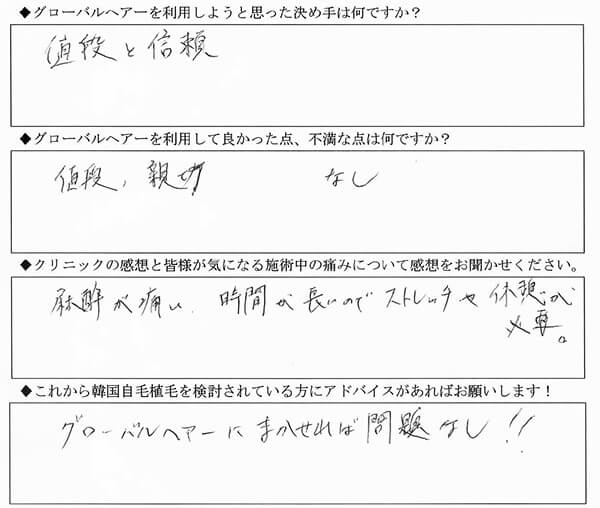 ◆グローバルヘアーを利用しようと思った決め手は何ですか？
値段と信頼
◆グローバルヘアーを利用して良かった点、不満な点は何ですか？
値段、親切 なし
◆クリニックの感想と皆様が気になる施術中の痛みについて感想をお聞かせください。
麻酔が痛い、時間が長いのでストレッチや休憩が
必要。
◆これから韓国自毛植毛を検討されている方にアドバイスがあればお願いします！
グローバルヘアーにまかせれば問題なし！！